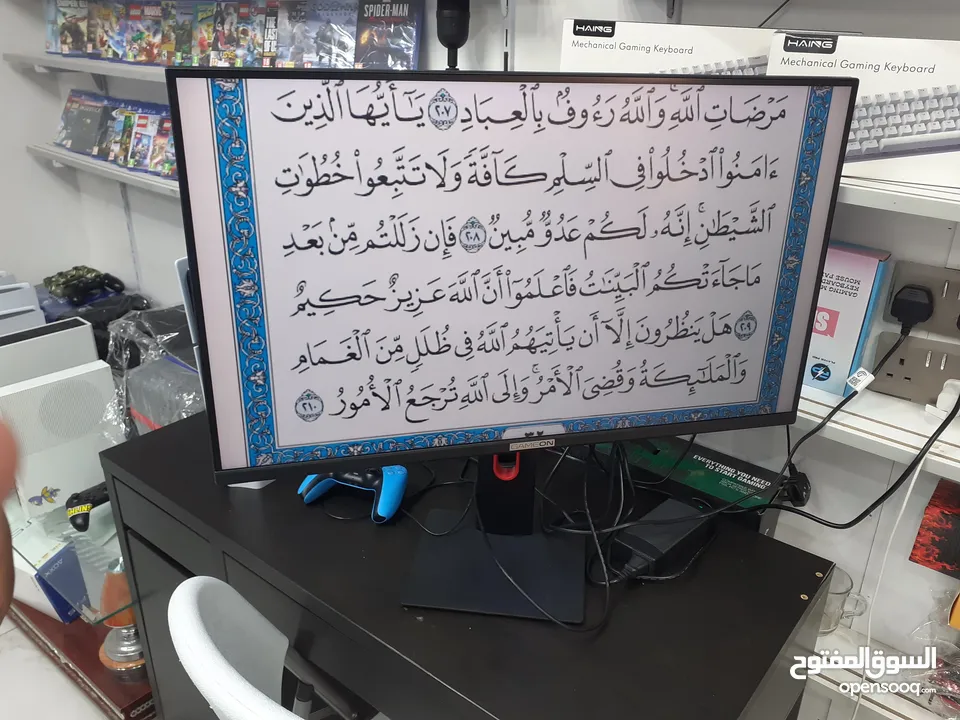 SPIDER-MAN
HAING
Mechanical Gaming Keyboard
HAING
Mechanical Gaming Keyboard
مَرْضَاتِ ٱللَّهِ ۗ وَٱللَّهُ رَءُوفٌۢ بِٱلْعِبَادِ ٢٠٧ يَـٰٓأَيُّهَا ٱلَّذِينَ
ءَامَنُوا۟ ٱدْخُلُوا۟ فِى ٱلسِّلْمِ كَآفَّةً وَلَا تَتَّبِعُوا۟ خُطُوَٰتِ
ٱلشَّيْطَـٰنِ ۚ إِنَّهُۥ لَكُمْ عَدُوٌّ مُّبِينٌ ٢٠٨ فَإِن زَلَلْتُم مِّنۢ بَعْدِ
مَا جَآءَتْكُمُ ٱلْبَيِّنَـٰتُ فَٱعْلَمُوٓا۟ أَنَّ ٱللَّهَ عَزِيزٌ حَكِيمٌ
٢٠٩ هَلْ يَنظُرُونَ إِلَّآ أَن يَأْتِيَهُمُ ٱللَّهُ فِى ظُلَلٍ مِّنَ ٱلْغَمَامِ
وَٱلْمَلَـٰٓئِكَةُ وَقُضِىَ ٱلْأَمْرُ ۚ وَإِلَى ٱللَّهِ تُرْجَعُ ٱلْأُمُورُ ٢١٠
GAMEON
GAMING
EVERYTHING YOU NEED
TO START GAMING!
السوق المفتوح
opensooq.com